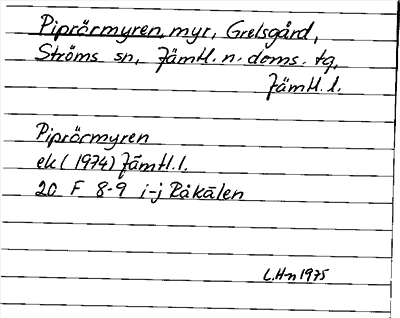 Piprörmyren, myr, Grelsgård,
Ströms sn, Jämtl. n. doms. tg,
Jämtl. l.
Piprörmyren
ek (1974) Jämtl. l.
20 F 8-9 i-j Råkålen
L.H-n 1975